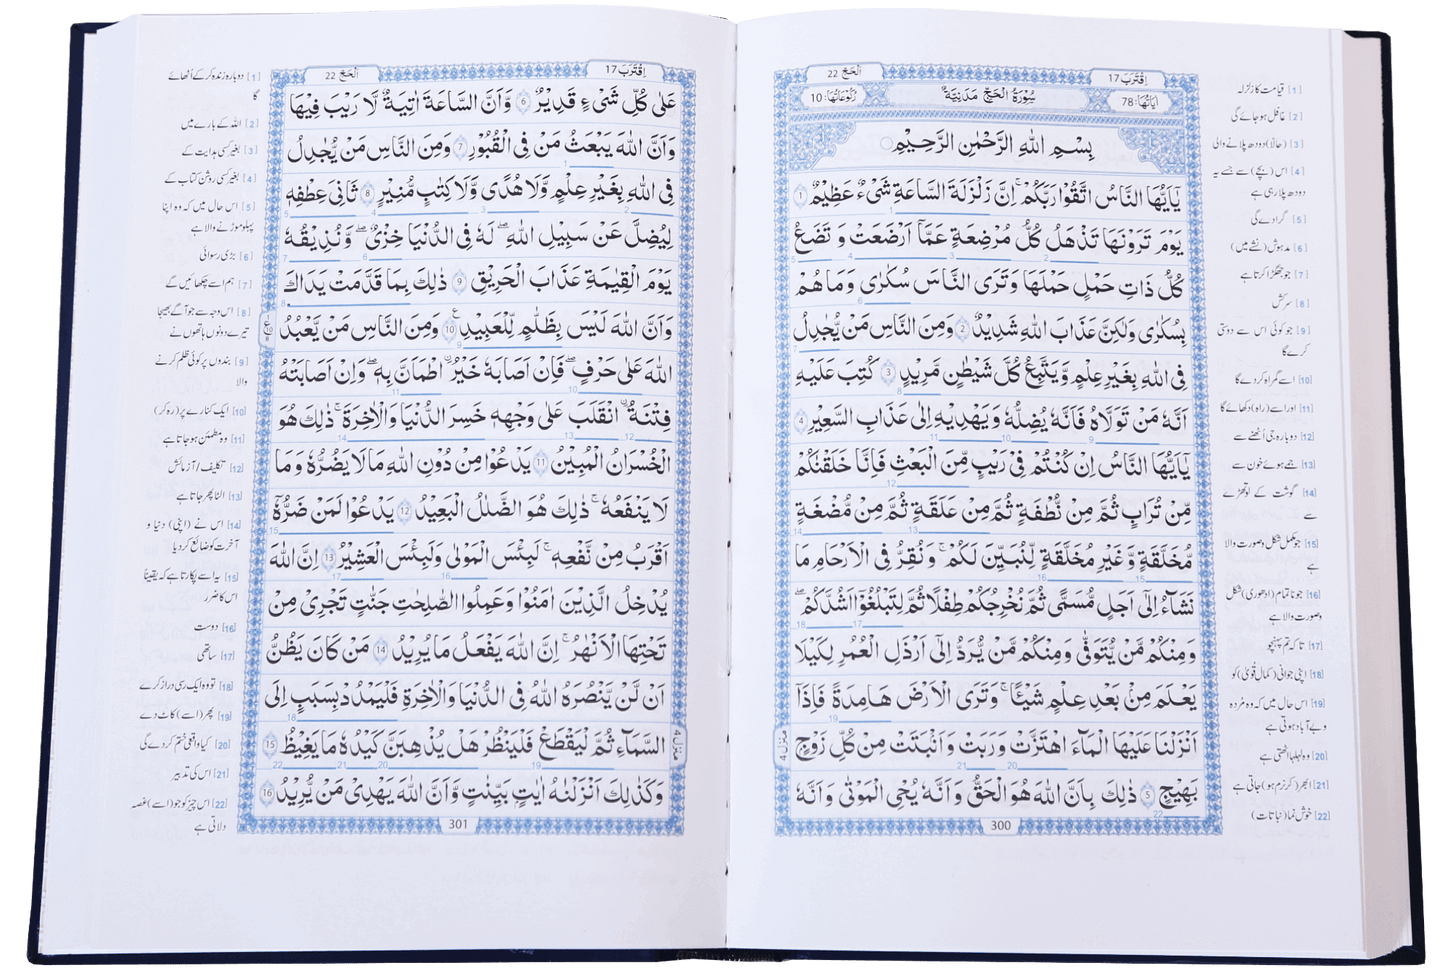 اِقْتَرَبَ 17
اَلْحَجّ 22
اٰيَاتُهَا: 78
سُوْرَةُ الْحَجِّ مَدَنِيَّةٌ
رُكُوْعَاتُهَا: 10
بِسْمِ اللّٰهِ الرَّحْمٰنِ الرَّحِيْمِ
يٰۤاَيُّهَا النَّاسُ اتَّقُوْا رَبَّكُمْ ۚ اِنَّ زَلْزَلَةَ السَّاعَةِ شَىْءٌ عَظِيْمٌ 1
يَوْمَ تَرَوْنَهَا تَذْهَلُ كُلُّ مُرْضِعَةٍ عَمَّاۤ اَرْضَعَتْ وَ تَضَعُ
كُلُّ ذَاتِ حَمْلٍ حَمْلَهَا وَتَرَى النَّاسَ سُكٰرٰى وَمَا هُمْ
بِسُكٰرٰى وَلٰكِنَّ عَذَابَ اللّٰهِ شَدِيْدٌ 2 وَمِنَ النَّاسِ مَنْ يُّجَادِلُ
فِى اللّٰهِ بِغَيْرِ عِلْمٍ وَّيَتَّبِعُ كُلَّ شَيْطٰنٍ مَّرِيْدٍ 3 كُتِبَ عَلَيْهِ
اَنَّهٗ مَنْ تَوَلَّاهُ فَاَنَّهٗ يُضِلُّهٗ وَيَهْدِيْهِ اِلٰى عَذَابِ السَّعِيْرِ 4
يٰۤاَيُّهَا النَّاسُ اِنْ كُنْتُمْ فِىْ رَيْبٍ مِّنَ الْبَعْثِ فَاِنَّا خَلَقْنٰكُمْ
مِّنْ تُرَابٍ ثُمَّ مِنْ نُّطْفَةٍ ثُمَّ مِنْ عَلَقَةٍ ثُمَّ مِنْ مُّضْغَةٍ
مُّخَلَّقَةٍ وَّغَيْرِ مُخَلَّقَةٍ لِّنُبَيِّنَ لَكُمْ ۚ وَنُقِرُّ فِى الْاَرْحَامِ مَا
نَشَآءُ اِلٰۤى اَجَلٍ مُّسَمًّى ثُمَّ نُخْرِجُكُمْ طِفْلًا ثُمَّ لِتَبْلُغُوْۤا اَشُدَّكُمْ ۖ
وَمِنْكُمْ مَّنْ يُّتَوَفّٰى وَمِنْكُمْ مَّنْ يُّرَدُّ اِلٰۤى اَرْذَلِ الْعُمُرِ لِكَيْلَا
يَعْلَمَ مِنْۢ بَعْدِ عِلْمٍ شَيْئًا ۚ وَتَرَى الْاَرْضَ هَامِدَةً فَاِذَاۤ
اَنْزَلْنَا عَلَيْهَا الْمَآءَ اهْتَزَّتْ وَرَبَتْ وَاَنْۢبَتَتْ مِنْ كُلِّ زَوْجٍۭ
بَهِيْجٍ 5 ذٰلِكَ بِاَنَّ اللّٰهَ هُوَ الْحَقُّ وَاَنَّهٗ يُحْىِ الْمَوْتٰى وَاَنَّهٗ
300
منزل 4
[1] قیامت کا زلزلہ
[2] غافل ہو جائے گی
[3] (حالاً) دودھ پلانے والی
[4] اس (بچے) سے جسے یہ
دودھ پلا رہی ہے
[5] گرا دے گی
[6] مدہوش (نشے میں)
[7] جو جھگڑا کرتا ہے
[8] سرکش
[9] جو کوئی اس سے دوستی
کرے گا
[10] اسے گمراہ کر دے گا
[11] اور اسے (راہ) دکھائے گا
[12] دوبارہ جی اُٹھنے سے
[13] جمے ہوئے خون سے
[14] گوشت کے لوتھڑے
سے
[15] جو مکمل شکل و صورت والا
ہے
[16] جو ناتمام (ادھوری) شکل
و صورت والا ہے
[17] تاکہ تم پہنچو
[18] اپنی جوانی (کمال قُویٰ) کو
[19] اس حال میں کہ وہ مُردہ
و بے آباد ہوتی ہے
[20] وہ لہلہا اٹھتی ہے
[21] ابھر (کر نرم ہو) جاتی ہے
[22] خوش نما (نباتات)
اِقْتَرَبَ 17
اَلْحَجّ 22
عَلٰى كُلِّ شَىْءٍ قَدِيْرٌ 6 وَّاَنَّ السَّاعَةَ اٰتِيَةٌ لَّا رَيْبَ فِيْهَا
وَاَنَّ اللّٰهَ يَبْعَثُ مَنْ فِى الْقُبُوْرِ 7 وَمِنَ النَّاسِ مَنْ يُّجَادِلُ
فِى اللّٰهِ بِغَيْرِ عِلْمٍ وَّلَا هُدًى وَّلَا كِتٰبٍ مُّنِيْرٍ 8 ثَانِىَ عِطْفِهٖ
لِيُضِلَّ عَنْ سَبِيْلِ اللّٰهِ ۖ لَهٗ فِى الدُّنْيَا خِزْىٌ ۖ وَّنُذِيْقُهٗ
يَوْمَ الْقِيٰمَةِ عَذَابَ الْحَرِيْقِ 9 ذٰلِكَ بِمَا قَدَّمَتْ يَدَاكَ
وَاَنَّ اللّٰهَ لَيْسَ بِظَلَّامٍ لِّلْعَبِيْدِ 10 وَمِنَ النَّاسِ مَنْ يَّعْبُدُ
اللّٰهَ عَلٰى حَرْفٍ ۖ فَاِنْ اَصَابَهٗ خَيْرُ اۨطْمَاَنَّ بِهٖ ۖ وَاِنْ اَصَابَتْهُ
فِتْنَةُ اۨنْقَلَبَ عَلٰى وَجْهِهٖ خَسِرَ الدُّنْيَا وَالْاٰخِرَةَ ۚ ذٰلِكَ هُوَ
الْخُسْرَانُ الْمُبِيْنُ 11 يَدْعُوْا مِنْ دُوْنِ اللّٰهِ مَا لَا يَضُرُّهٗ وَمَا
لَا يَنْفَعُهٗ ۚ ذٰلِكَ هُوَ الضَّلٰلُ الْبَعِيْدُ 12 يَدْعُوْا لَمَنْ ضَرُّهٗۤ
اَقْرَبُ مِنْ نَّفْعِهٖ ۚ لَبِئْسَ الْمَوْلٰى وَلَبِئْسَ الْعَشِيْرُ 13 اِنَّ اللّٰهَ
يُدْخِلُ الَّذِيْنَ اٰمَنُوْا وَعَمِلُوا الصّٰلِحٰتِ جَنّٰتٍ تَجْرِىْ مِنْ
تَحْتِهَا الْاَنْهٰرُ ۚ اِنَّ اللّٰهَ يَفْعَلُ مَا يُرِيْدُ 14 مَنْ كَانَ يَظُنُّ
اَنْ لَّنْ يَّنْصُرَهُ اللّٰهُ فِى الدُّنْيَا وَالْاٰخِرَةِ فَلْيَمْدُدْ بِسَبَبٍ اِلَى
السَّمَآءِ ثُمَّ لْيَقْطَعْ فَلْيَنْظُرْ هَلْ يُذْهِبَنَّ كَيْدُهٗ مَا يَغِيْظُ 15
وَكَذٰلِكَ اَنْزَلْنٰهُ اٰيٰتٍۭ بَيِّنٰتٍ وَّاَنَّ اللّٰهَ يَهْدِىْ مَنْ يُّرِيْدُ 16
301
منزل 4
[1] دوبارہ زندہ کر کے اُٹھائے
گا
[2] اللہ کے بارے میں
[3] بغیر کسی ہدایت کے
[4] بغیر کسی روشن کتاب کے
[5] اس حال میں کہ وہ اپنا
پہلو موڑنے والا ہے
[6] بڑی رسوائی
[7] ہم اسے چکھائیں گے
[8] اس وجہ سے جو آگے بھیجا
تیرے دونوں ہاتھوں نے
[9] بندوں پر کوئی ظلم کرنے
والا
[10] ایک کنارے پر (رہ کر)
[11] وہ مطمئن ہو جاتا ہے
[12] تکلیف/آزمائش
[13] الٹا پھر جاتا ہے
[14] اس نے (اپنی) دنیا و
آخرت کو ضائع کر دیا
[15] یہ اسے پکارتا ہے کہ یقیناً
اس کا ضرر
[16] دوست
[17] ساتھی
[18] تو وہ ایک رسی دراز کرے
[19] پھر (اسے) کاٹ دے
[20] کیا واقعی ختم کر دے گی
[21] اس کی تدبیر
[22] اس چیز کو جو (اسے) غصہ
دلاتی ہے